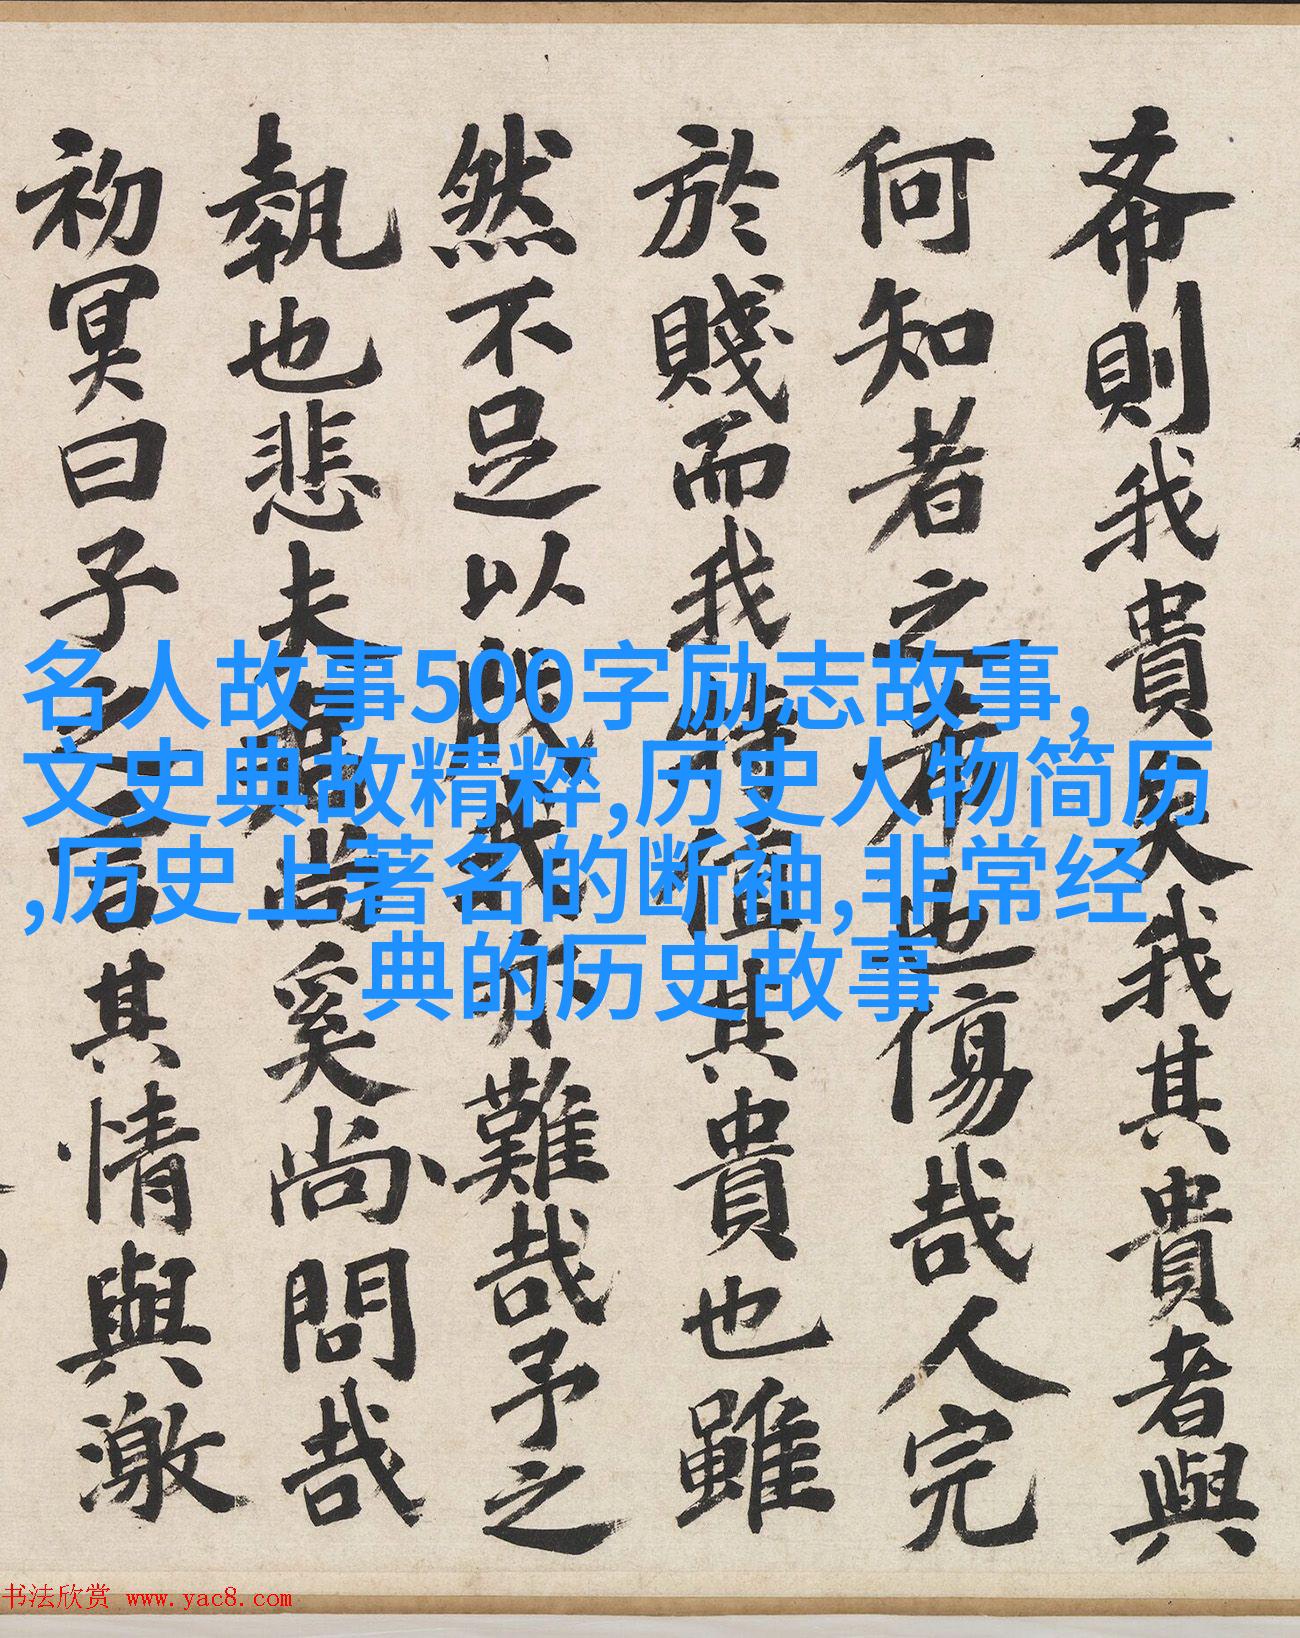 希則我貴矣我其貴者與
何知者之希也傷哉人完
於賤而我值其貴也雖
然不足以我亦難哉予之
執也悲夫尚奚尚問哉
初冥曰子之言其情與激
名人故事500字励志故事,
文史典故精粹,历史人物简历
,历史上著名的断袖,非常经
典的历史故事
书法欣赏 www.yac8.com